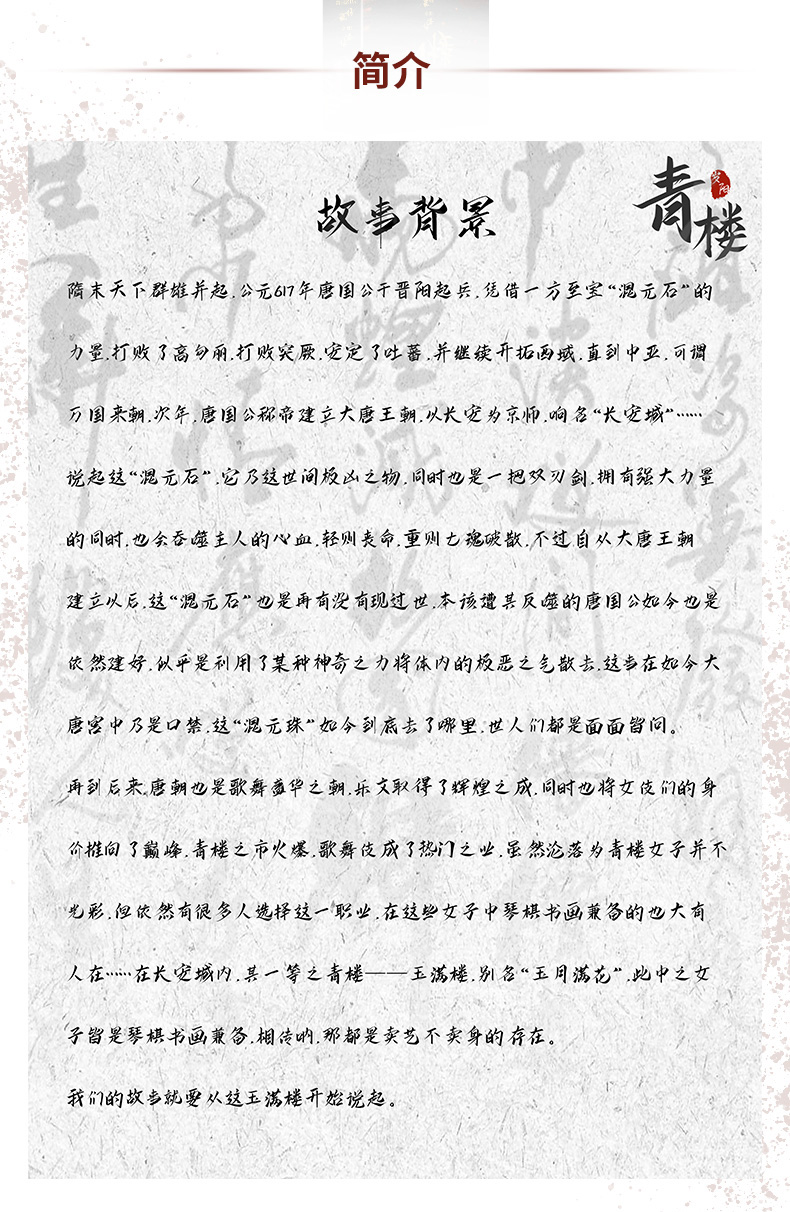 简介
青楼
岁阳
故事背景
隋末天下群雄并起,公元617年唐国公于晋阳起兵,凭借一方至宝“混元石”的
力量,打败了高句丽,打败突厥,安定了吐蕃,并继续开拓西域,直到中亚,可谓
万国来朝,次年,唐国公称帝建立大唐王朝,以长安为京师,响名“长安城”……
说起这“混元石”,它乃这世间极凶之物,同时也是一把双刃剑,拥有强大力量
的同时,也会吞噬主人的心血,轻则丧命,重则七魂破散,不过自从大唐王朝
建立以后,这“混元石”也是再有没有现过世,本该遭其反噬的唐国公如今也是
依然建好,似乎是利用了某种神奇之力将体内的极恶之气散去,这当在如今大
唐宫中乃是口禁,这“混元珠”如今到底去了哪里,世人们都是面面皆问。
再到后来,唐朝也是歌舞盛华之朝,乐文取得了辉煌之成,同时也将女伎们的身
价推向了巅峰,青楼之市火爆,歌舞伎成了热门之业,虽然沦落为青楼女子并不
光彩,但依然有很多人选择这一职业,在这些女子中琴棋书画兼备的也大有
人在……在长安城内,其一等之青楼——玉满楼,别名“玉月满花”,此中之女
子皆是琴棋书画兼备,相传呐,那都是卖艺不卖身的存在。
我们的故事就要从这玉满楼开始说起。